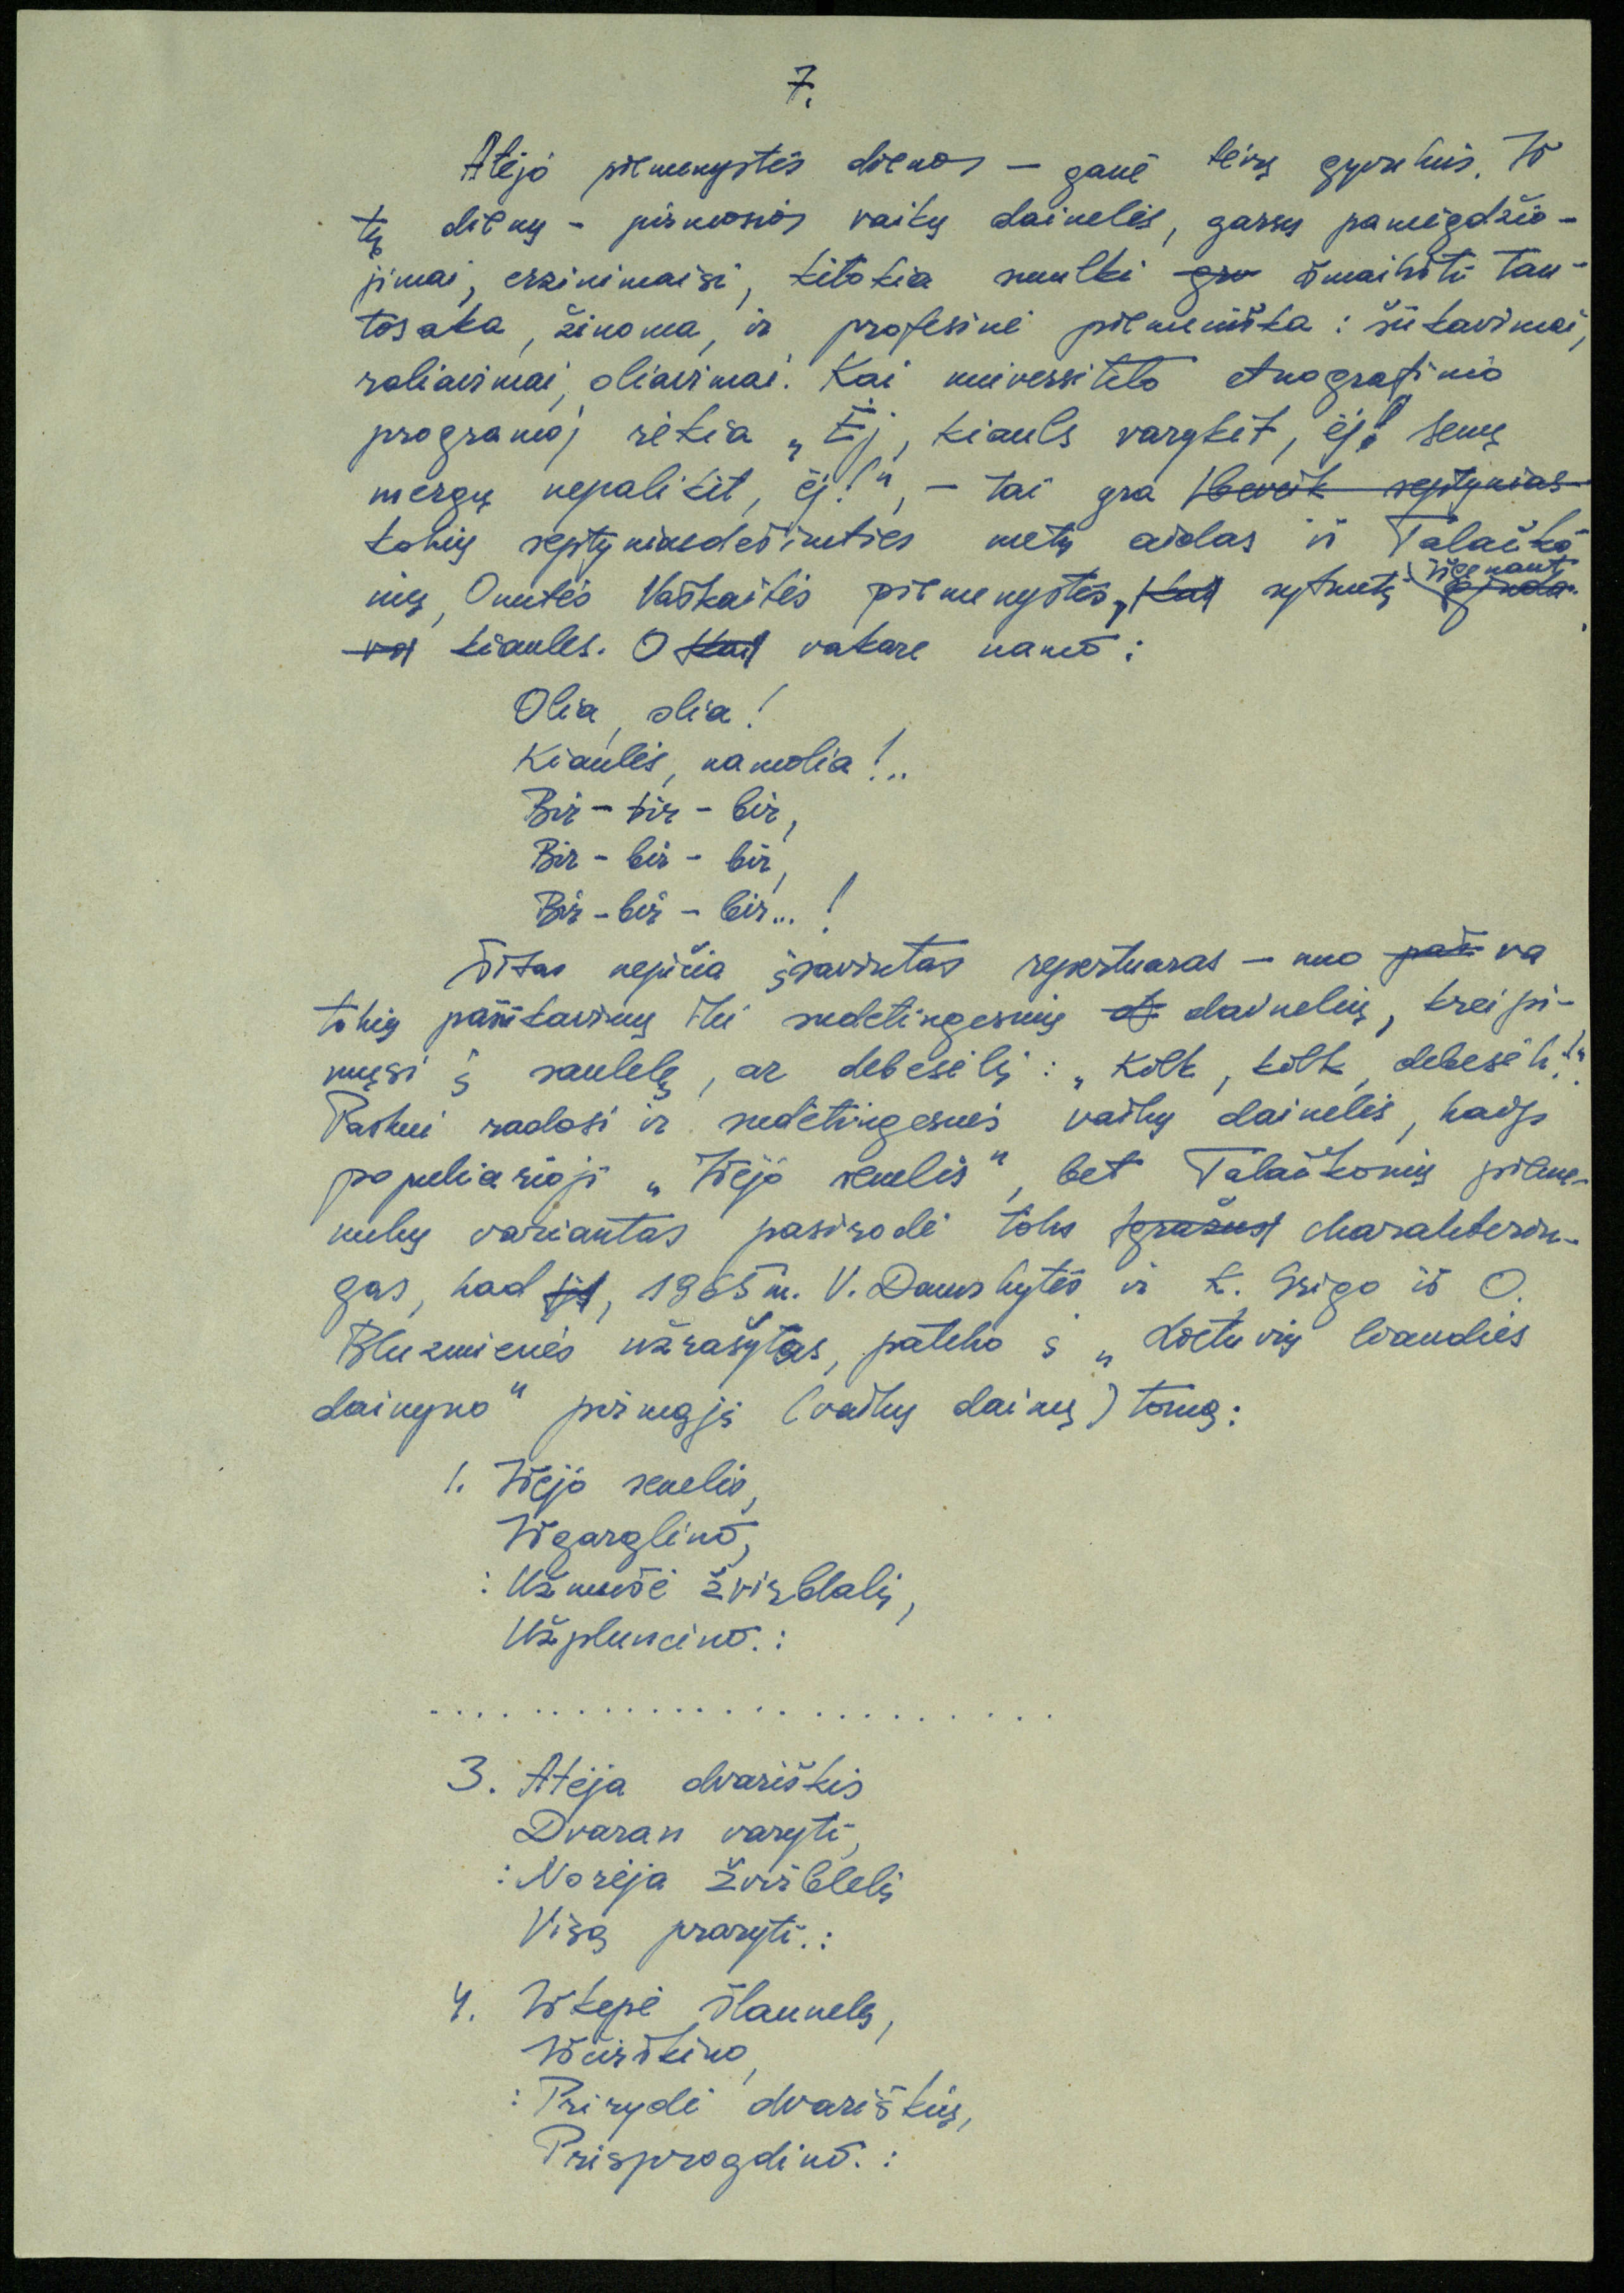 7.
Atėjo piemenystės dienos – ganė tėvų gyvulius. Iš
tų dienų – pirmosios vaikų dainelės, garsų pamėgdžio-
jimai, erzinimaisi, kitokia smulki gro šmaikšti tau-
tosaka, žinoma, ir profesinė piemeniška: šūkavimai,
raliavimai, oliavimai. Kai universiteto etnografinio
programoj rėkia „Ėj, kiauls varykit, ėj! Senų
mergų nepalikit, ėj!", – tai yra beveik septynias
tokių septyniasdešimties metų aidas iš Talačko
nių, Onutės Vaškaitės piemenystės, kai rytmetį išgenant ginda
vo kiaules. O kai vakare namo:
Olia, olia!
Kiaulės, namolia!..
Bir – bir – bir,
Bir – bir – bir,
Bir – bir – bir...!
Šitas nejučia įsavintas repertuaras – nuo pač va
tokių pašūkavimų iki sudėtingesnių d dainelių, kreipi-
mųsi į saulelę, ar debesėlį: „Kilk, kilk, debesėli!"
Paskui radosi ir sudėtingesnės vaikų dainelės, kaip
populiarioji „Išėjo senelis", bet Talačkonių pieme-
nukų variantas pasirodė toks gražus charakterin-
gas, kad jis, 1965 m. V. Daunkytės ir K. Grigo iš O.
Bluzmienės užrašytas, pateko į „Lietuvių liaudies
dainyno" pirmąjį (vaikų dainų) tomą:
1. Išėjo senelis,
Išgarglino,
: Užmušė žvirblalį,
Užpluncino. :
. . . . . . . . . . . . . . . . . . . . . . . .
3. Atėja dvariškis
Dvaran varyti,
: Norėja žvirblelį
Visą praryti. :
4. Iškepė šlaunelę,
Iščirškino,
: Prirydė dvariškių,
Prisprogdino. :